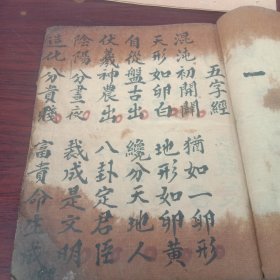 一
五字經
混沌初開闢 猶如一卵形
天形如卵白 地形如卵黃
自從盤古出 纔分天地人
伏義神農出 八卦定君臣
陰陽分晝夜 裁成是文明
造化分貴賤 富貴命生成